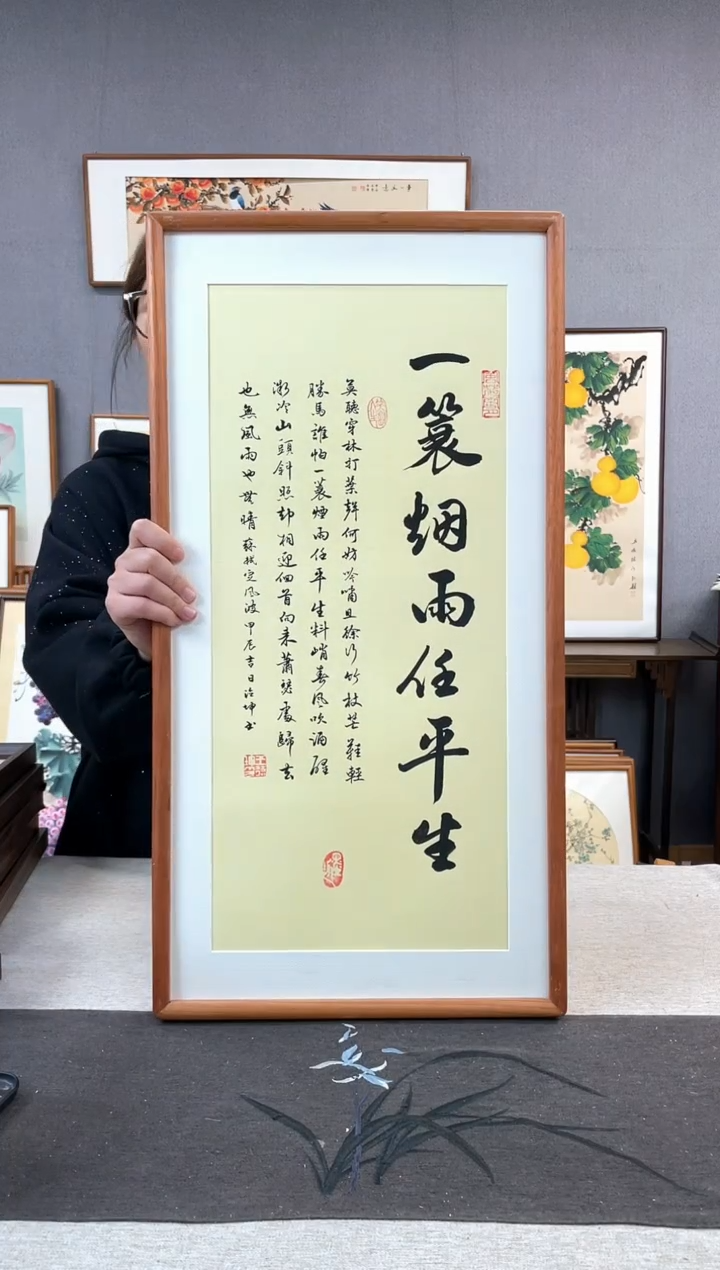 一蓑烟雨任平生
莫聽穿林打葉聲何妨吟嘯且徐行竹杖芒鞋輕
勝馬誰怕一蓑煙雨任平生料峭春風吹酒醒
微冷山頭斜照却相迎回首向來蕭瑟處歸去
也無風雨也無晴蘇軾定風波甲辰吉日治坤书